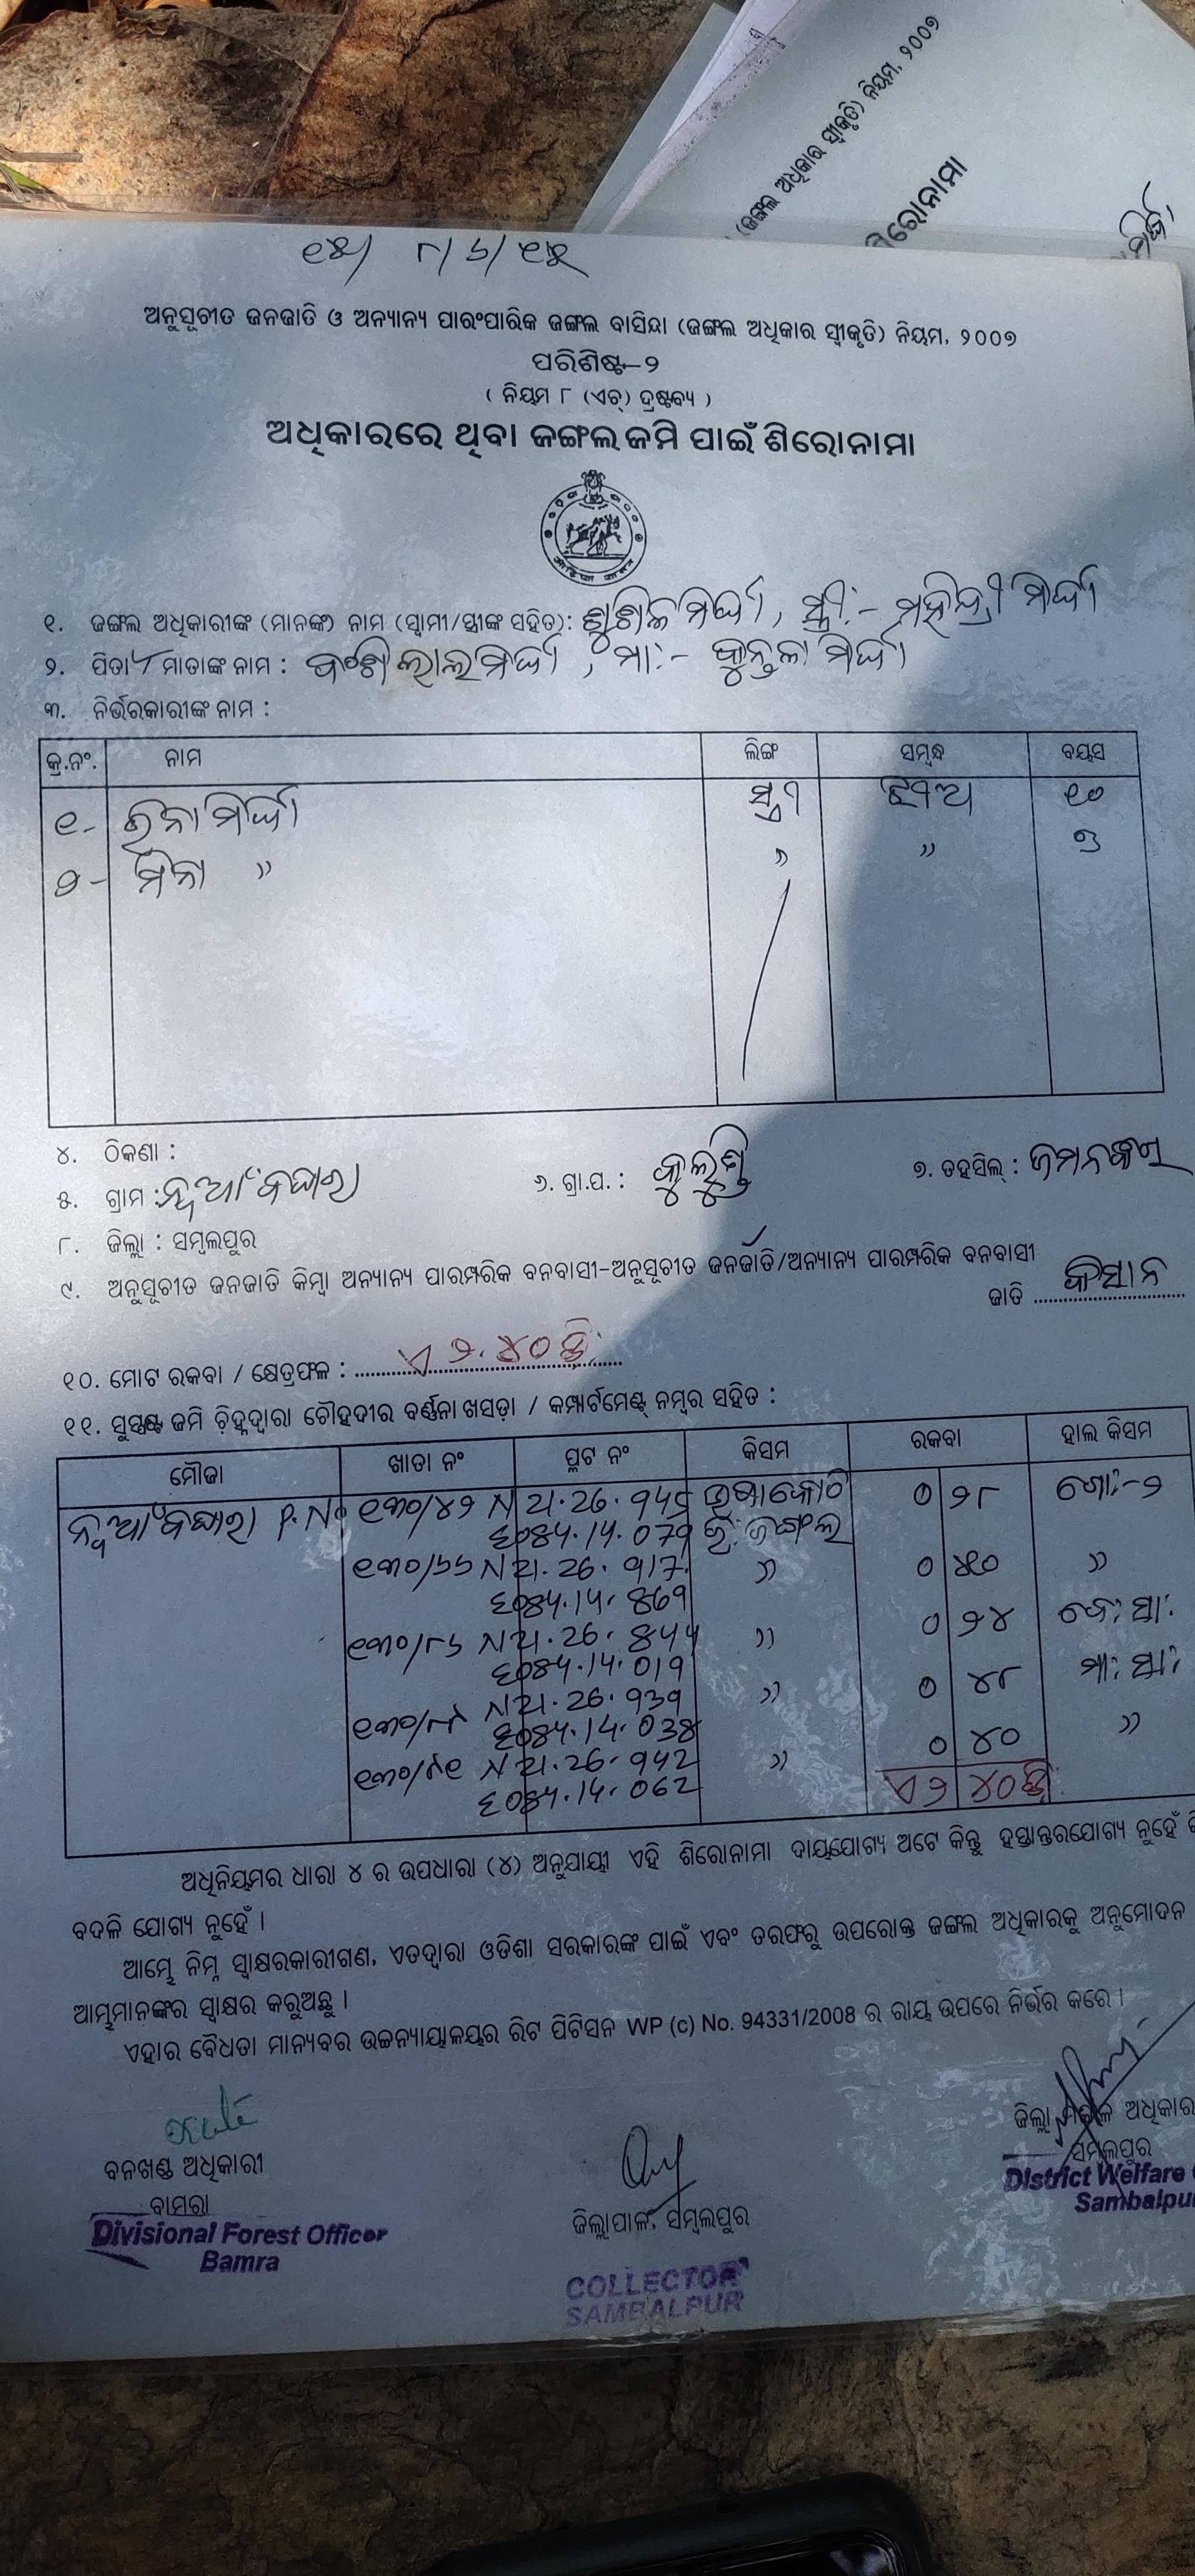 (ଜଙ୍ଗଲ ଅଧିକାର ସ୍ୱୀକୃତି) ନିୟମ, ୨୦୦୭
ଶିରୋନାମା
ମିର୍ଦ୍ଧା
୧୪/ ୮/୬/୧୨
ଅନୁସୂଚୀତ ଜନଜାତି ଓ ଅନ୍ୟାନ୍ୟ ପାରଂପାରିକ ଜଙ୍ଗଲ ବାସିନ୍ଦା (ଜଙ୍ଗଲ ଅଧିକାର ସ୍ୱୀକୃତି) ନିୟମ, ୨୦୦୭
ପରିଶିଷ୍ଟ-୨
( ନିୟମ ୮ (ଏଚ୍) ଦ୍ରଷ୍ଟବ୍ୟ )
ଅଧିକାରରେ ଥିବା ଜଙ୍ଗଲ ଜମି ପାଇଁ ଶିରୋନାମା
୧. ଜଙ୍ଗଲ ଅଧିକାରୀଙ୍କ (ମାନଙ୍କ) ନାମ (ସ୍ୱାମୀ/ସ୍ତ୍ରୀଙ୍କ ସହିତ): ମିର୍ଦ୍ଧା, ସ୍ତ୍ରୀ:- ମିର୍ଦ୍ଧା
୨. ପିତା/ ମାତାଙ୍କ ନାମ : ବଂଶୀ ଲାଲ ମିର୍ଦ୍ଧା, ମା:- କୁନ୍ତଳା ମିର୍ଦ୍ଧା
୩. ନିର୍ଭରକାରୀଙ୍କ ନାମ :
କ୍ର.ନଂ. ନାମ ଲିଙ୍ଗ ସମ୍ବନ୍ଧ ବୟସ
୧- ରିନା ମିର୍ଦ୍ଧା ସ୍ତ୍ରୀ ଝିଅ ୧୦
୨- ମିନା " " " ୭
୪. ଠିକଣା :
୫. ଗ୍ରାମ : ନୂଆଁବଘାରା ୬. ଗ୍ରା.ପ. : କୁଲୁଣ୍ଡି ୭. ତହସିଲ୍ : ଜମନକିରା
୮. ଜିଲ୍ଲା : ସମ୍ବଲପୁର
୯. ଅନୁସୂଚୀତ ଜନଜାତି କିମ୍ବା ଅନ୍ୟାନ୍ୟ ପାରମ୍ପରିକ ବନବାସୀ-ଅନୁସୂଚୀତ ଜନଜାତି/ଅନ୍ୟାନ୍ୟ ପାରମ୍ପରିକ ବନବାସୀ
ଜାତି କିସାନ
୧୦. ମୋଟ ରକବା / କ୍ଷେତ୍ରଫଳ : ଏ ୨.୪୦ ଡି:
୧୧. ସୁସ୍ପଷ୍ଟ ଜମି ଚିହ୍ନଦ୍ୱାରା ଚୌହଦୀର ବର୍ଣ୍ଣନା ଖସଡ଼ା / କମ୍ପାର୍ଟମେଣ୍ଟ୍ ନମ୍ବର ସହିତ :
ମୌଜା ଖାତା ନଂ ପ୍ଲଟ ନଂ କିସମ ରକବା ହାଲ କିସମ
ନୂଆଁବଘାରା P.No ୧୩୦/୪୨ N 21.26.945 0 ୨୮ ଗୋ:-୨
E084.14.079 ଜଙ୍ଗଲ
୧୩୦/୬୬ N 21.26.917 " 0 "
E084.14.869
୧୩୦/୮୬ N 21.26.844 " 0 ୨୪ ବେ: ସା:
E084.14.019
N 21.26.939 " 0 ୪୮ ମା: ସା:
E084.14.038
N 21.26.942 " 0 ୪୦ "
E084.14.062
ଏ ୨ ୪୦ ଡି
ଅଧିନିୟମର ଧାରା ୪ ର ଉପଧାରା (୪) ଅନୁଯାୟୀ ଏହି ଶିରୋନାମା ଦାୟଯୋଗ୍ୟ ଅଟେ କିନ୍ତୁ ହସ୍ତାନ୍ତରଯୋଗ୍ୟ ନୁହେଁ
ବଦଳି ଯୋଗ୍ୟ ନୁହେଁ ।
ଆମ୍ଭେ ନିମ୍ନ ସ୍ୱାକ୍ଷରକାରୀଗଣ, ଏତଦ୍ୱାରା ଓଡିଶା ସରକାରଙ୍କ ପାଇଁ ଏବଂ ତରଫରୁ ଉପରୋକ୍ତ ଜଙ୍ଗଲ ଅଧିକାରକୁ ଅନୁମୋଦନ
ଆମ୍ଭମାନଙ୍କର ସ୍ୱାକ୍ଷର କରୁଅଛୁ ।
ଏହାର ବୈଧତା ମାନ୍ୟବର ଉଚ୍ଚନ୍ୟାୟାଳୟର ରିଟ ପିଟିସନ WP (c) No. 94331/2008 ର ରାୟ ଉପରେ ନିର୍ଭର କରେ ।
ବନଖଣ୍ଡ ଅଧିକାରୀ
ବାମରା
Divisional Forest Officer
Bamra
ଜିଲ୍ଲାପାଳ, ସମ୍ବଲପୁର
COLLECTOR
SAMBALPUR
ଜିଲ୍ଲା ମଙ୍ଗଳ ଅଧିକାର
ସମ୍ବଲପୁର
District Welfare
Sambalpur